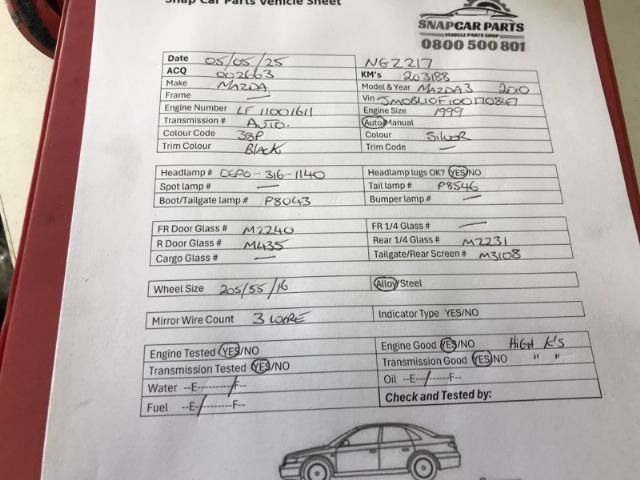 Snap Car Parts Vehicle Sheet
SNAPCAR PARTS
VEHICLE PARTS SHOP
0800 500 801
Date 05/05/25 NGZ217
ACQ 002663 KM's 203188
Make MAZDA Model & Year MAZDA3 2010
Frame — Vin JM0BL10F100170847
Engine Number LF 11001611 Engine Size 1999
Transmission # AUTO. Auto/Manual
Colour Code 38P Colour SILVER
Trim Colour BLACK Trim Code —
Headlamp # CEPO-316-1140 Headlamp lugs OK? YES/NO
Spot lamp # — Tail lamp # P8546
Boot/Tailgate lamp # P8043 Bumper lamp # —
FR Door Glass # M2240 FR 1/4 Glass # —
R Door Glass # M435 Rear 1/4 Glass # M2231
Cargo Glass # — Tailgate/Rear Screen # M3108
Wheel Size 205/55/16 Alloy/Steel
Mirror Wire Count 3 WIRE Indicator Type YES/NO
Engine Tested YES/NO Engine Good YES/NO HIGH K'S
Transmission Tested YES/NO Transmission Good YES/NO " "
Water --E----------F-- Oil --E-/------F--
Fuel --E-/---------F-- Check and Tested by: